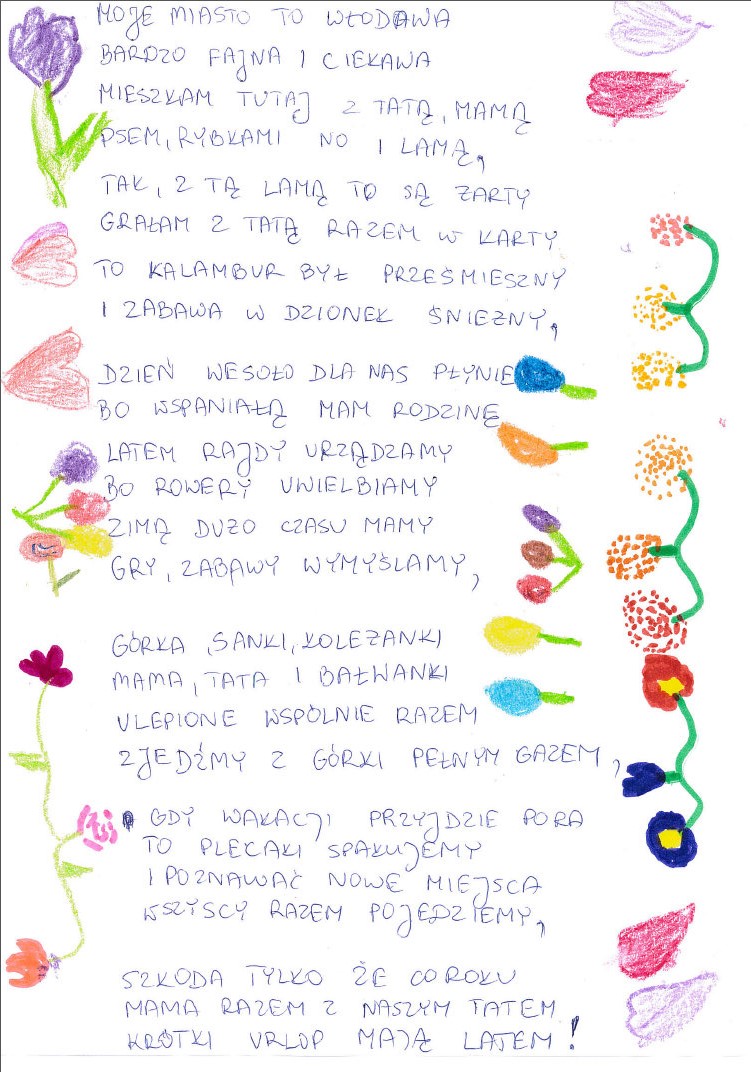 MOJE MIASTO TO WŁODAWA
BARDZO FAJNA I CIEKAWA
MIESZKAM TUTAJ Z TATĄ, MAMĄ
PSEM, RYBKAMI NO I LAMĄ,
TAK, Z TĄ LAMĄ TO SĄ ŻARTY
GRAŁAM Z TATĄ RAZEM W KARTY
TO KALAMBUR BYŁ PRZEŚMIESZNY
I ZABAWA W DZIONEK ŚNIEŻNY,
DZIEŃ WESOŁO DLA NAS PŁYNIE
BO WSPANIAŁĄ MAM RODZINĘ
LATEM RAJDY URZĄDZAMY
BO ROWERY UWIELBIAMY
ZIMĄ DUŻO CZASU MAMY
GRY, ZABAWY WYMYŚLAMY,
GÓRKA, SANKI, KOLEŻANKI
MAMA, TATA I BAŁWANKI
ULEPIONE WSPÓLNIE RAZEM
ZJEDŹMY Z GÓRKI PEŁNYM GAZEM,
GDY WAKACJI PRZYJDZIE PORA
TO PLECAKI SPAKUJEMY
I POZNAWAĆ NOWE MIEJSCA
WSZYSCY RAZEM POJEDZIEMY,
SZKODA TYLKO ŻE CO ROKU
MAMA RAZEM Z NASZYM TATEM
KRÓTKI URLOP MAJĄ LATEM!